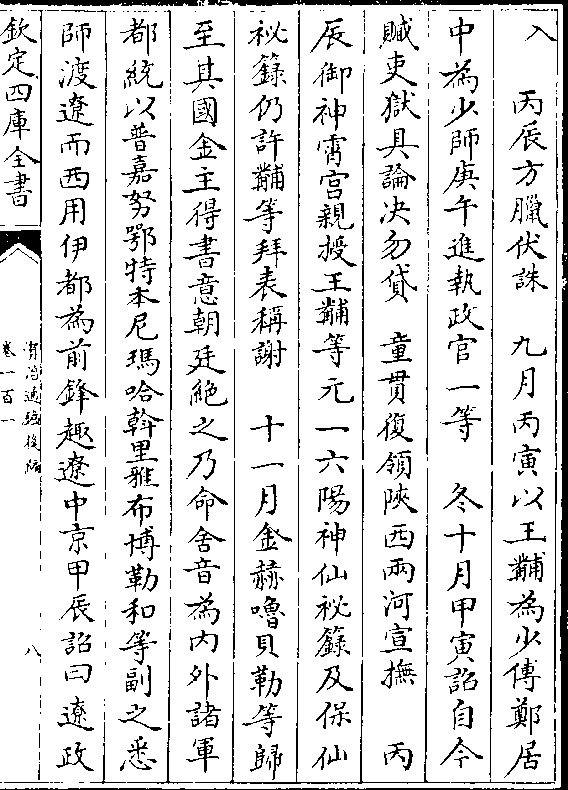 入　丙辰方臘伏誅　九月丙寅以王黼為少傅鄭居
中為少師庚午進執政官一等　冬十月甲寅詔自今
贓吏獄具論决勿貸　童貫復領陜西兩河宣撫　丙
辰御神霄宮親授王黼等元一六陽神仙祕籙及保仙
祕籙仍許黼等拜表稱謝　十一月金赫嚕貝勒等歸
至其國金主得書意朝廷絶之乃命舍音為内外諸軍
都統以普嘉努鄂特本尼瑪哈斡里雅布博勒和等副之悉
師渡遼而西用伊都為前鋒趣遼中京甲辰詔曰遼政
欽定四庫全書
資治通鑑後編
卷一百一
八